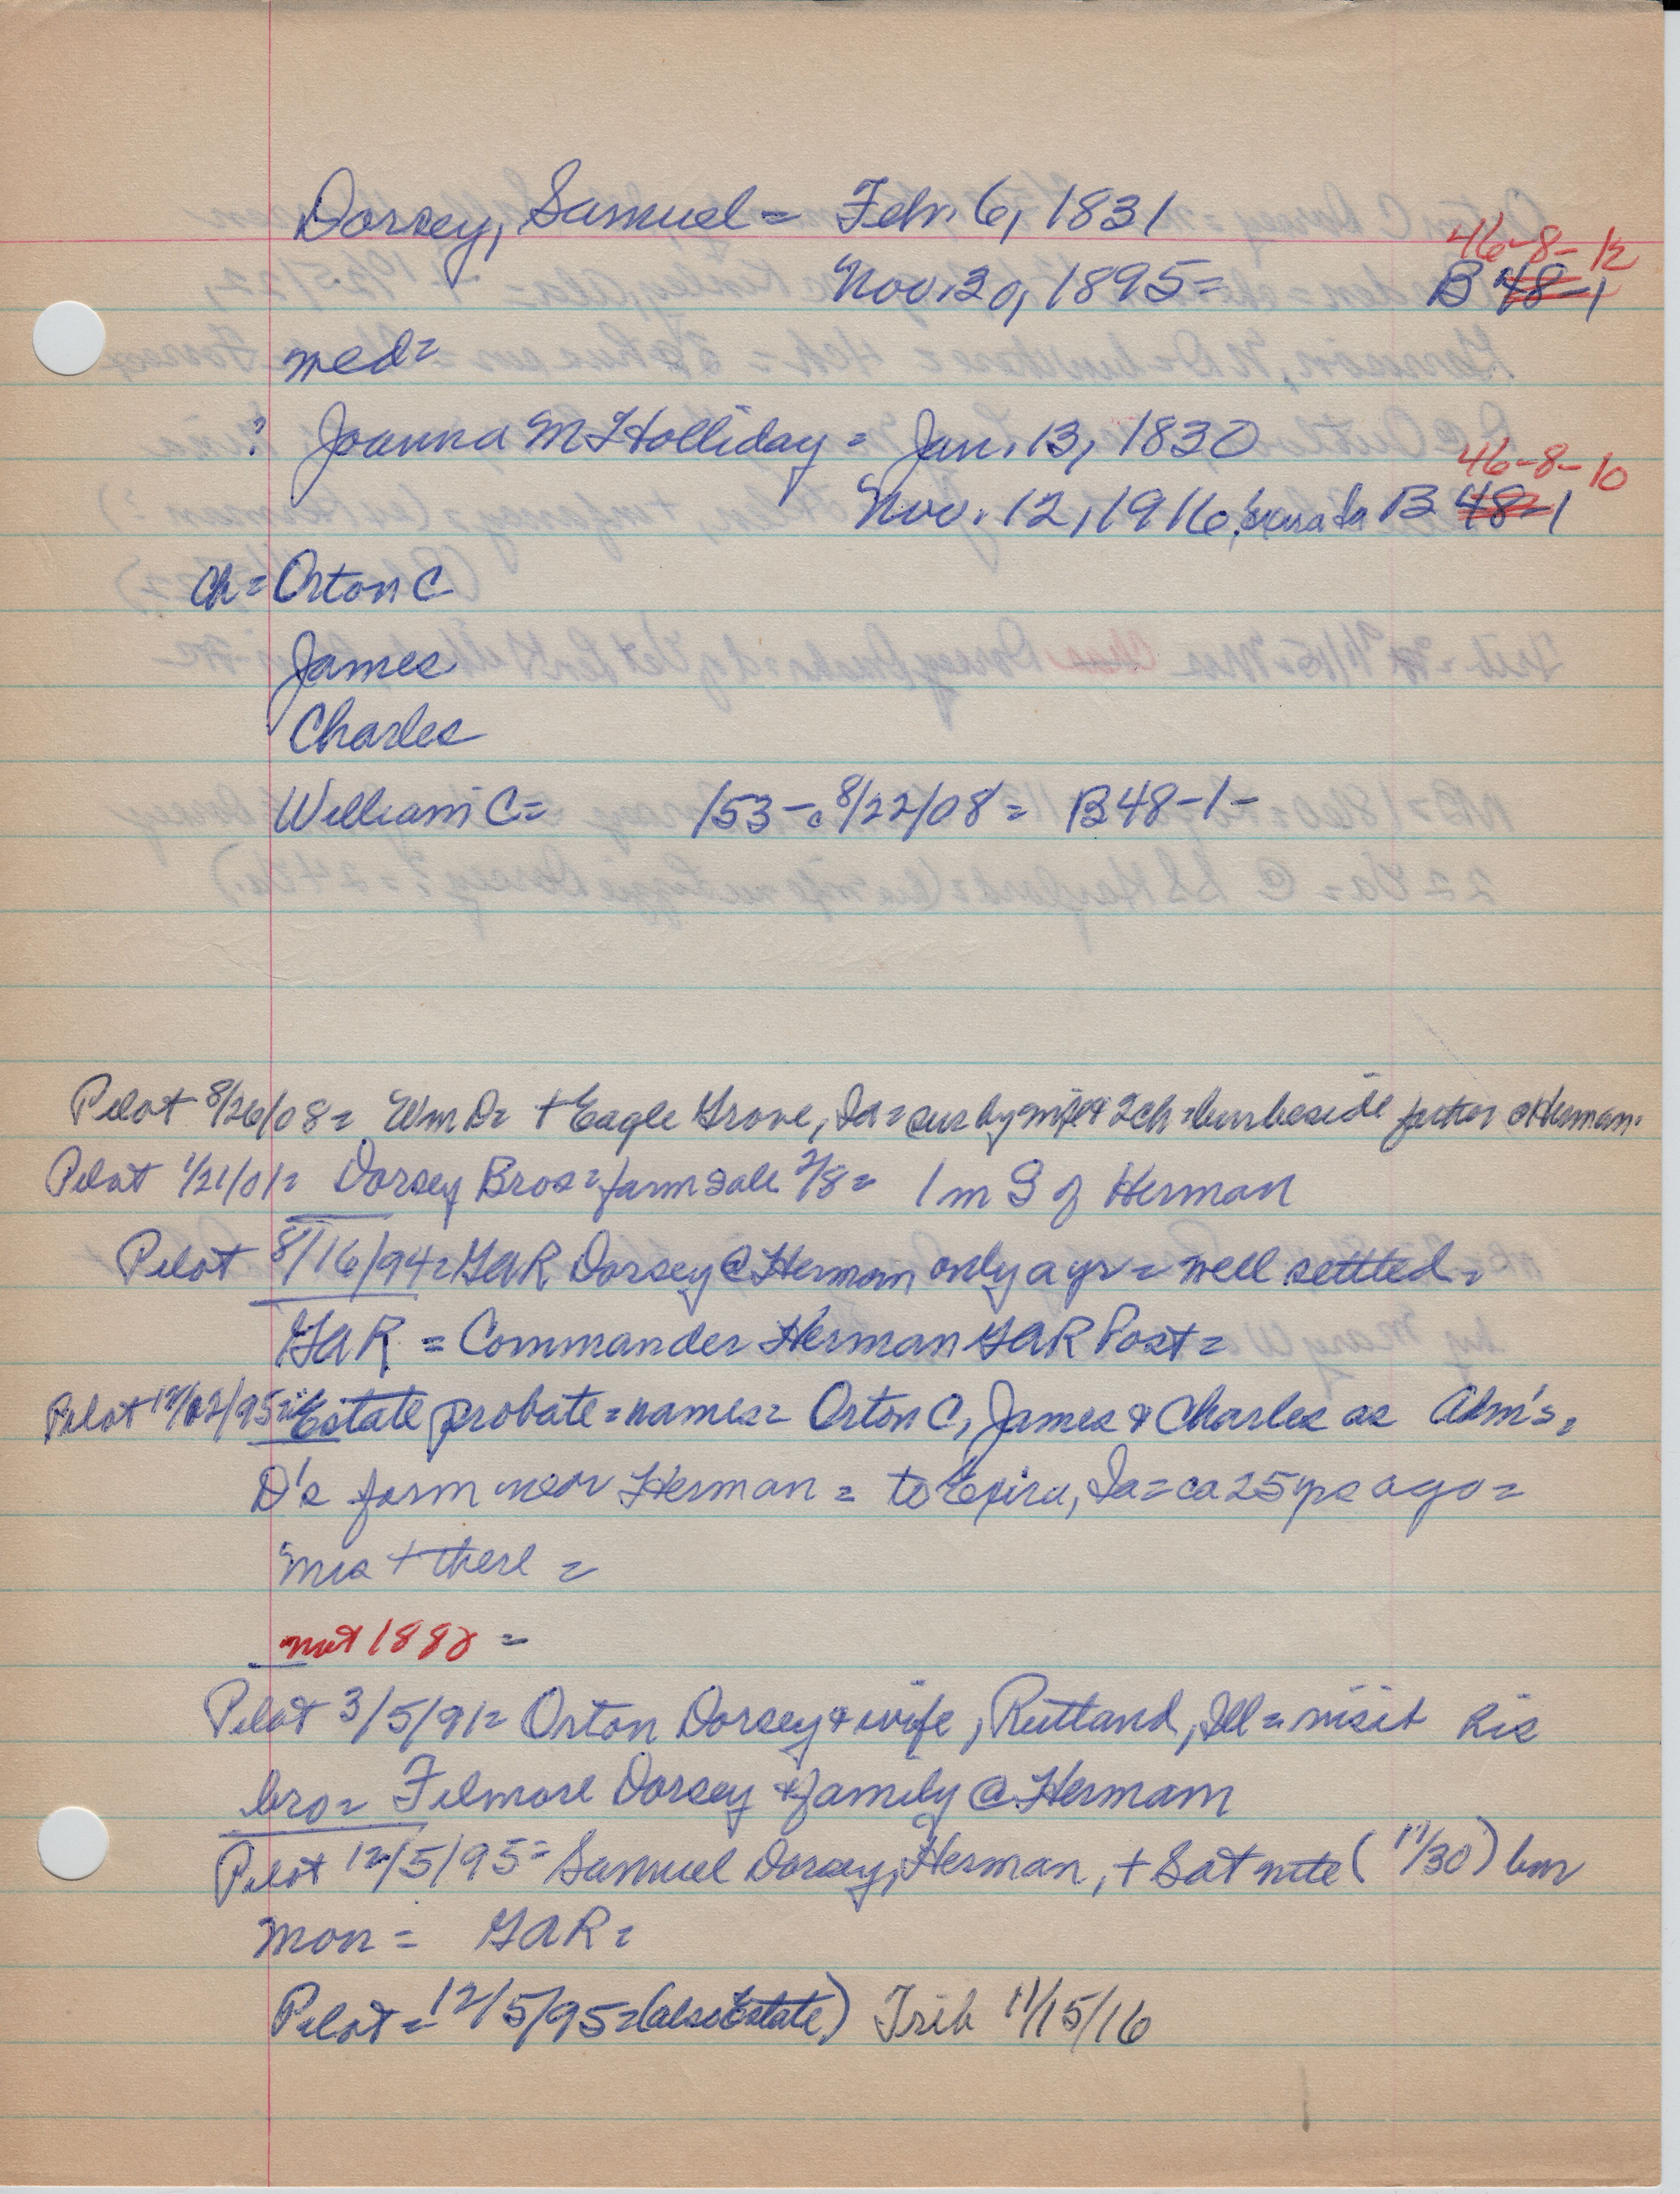 Dorsey, Samuel = Feb. 6, 1831
46-8-12
Nov. 30, 1895 = B 48-1
med =
? Joanna M Holliday = Jan. 13, 1830
46-8-10
Nov. 12, 1916 B 48-1
Ch = Orton C
James
Charles
William C = 153 - 8/22/08 = B 48-1-
Pilot 8/26/08 = Wm D = + Eagle Grove, Ia = sur by wife & 2 ch = bur beside father @ Herman.
Pilot 1/21/01 = Dorsey Bros = farm sale 2/8 = 1 m S of Herman
Pilot 8/16/94 = GAR Dorsey @ Herman only a yr = well settled =
GAR = Commander Herman GAR Post =
Pilot 12/02/95 = Estate probate = names = Orton C, James & Charles as Adm's =
D's farm near Herman = to Ia = ca 25 yrs ago =
Mrs + there =
not 1888 =
Pilot 3/5/91 = Orton Dorsey & wife, Rutland, Ill = visit his
bro = Filmore Dorsey & family @ Herman
Pilot 12/5/95 = Samuel Dorsey, Herman, + Sat nite (11/30) bur
Mon = GAR =
Pilot = 12/5/95 = (also Estate) Trib 11/15/16